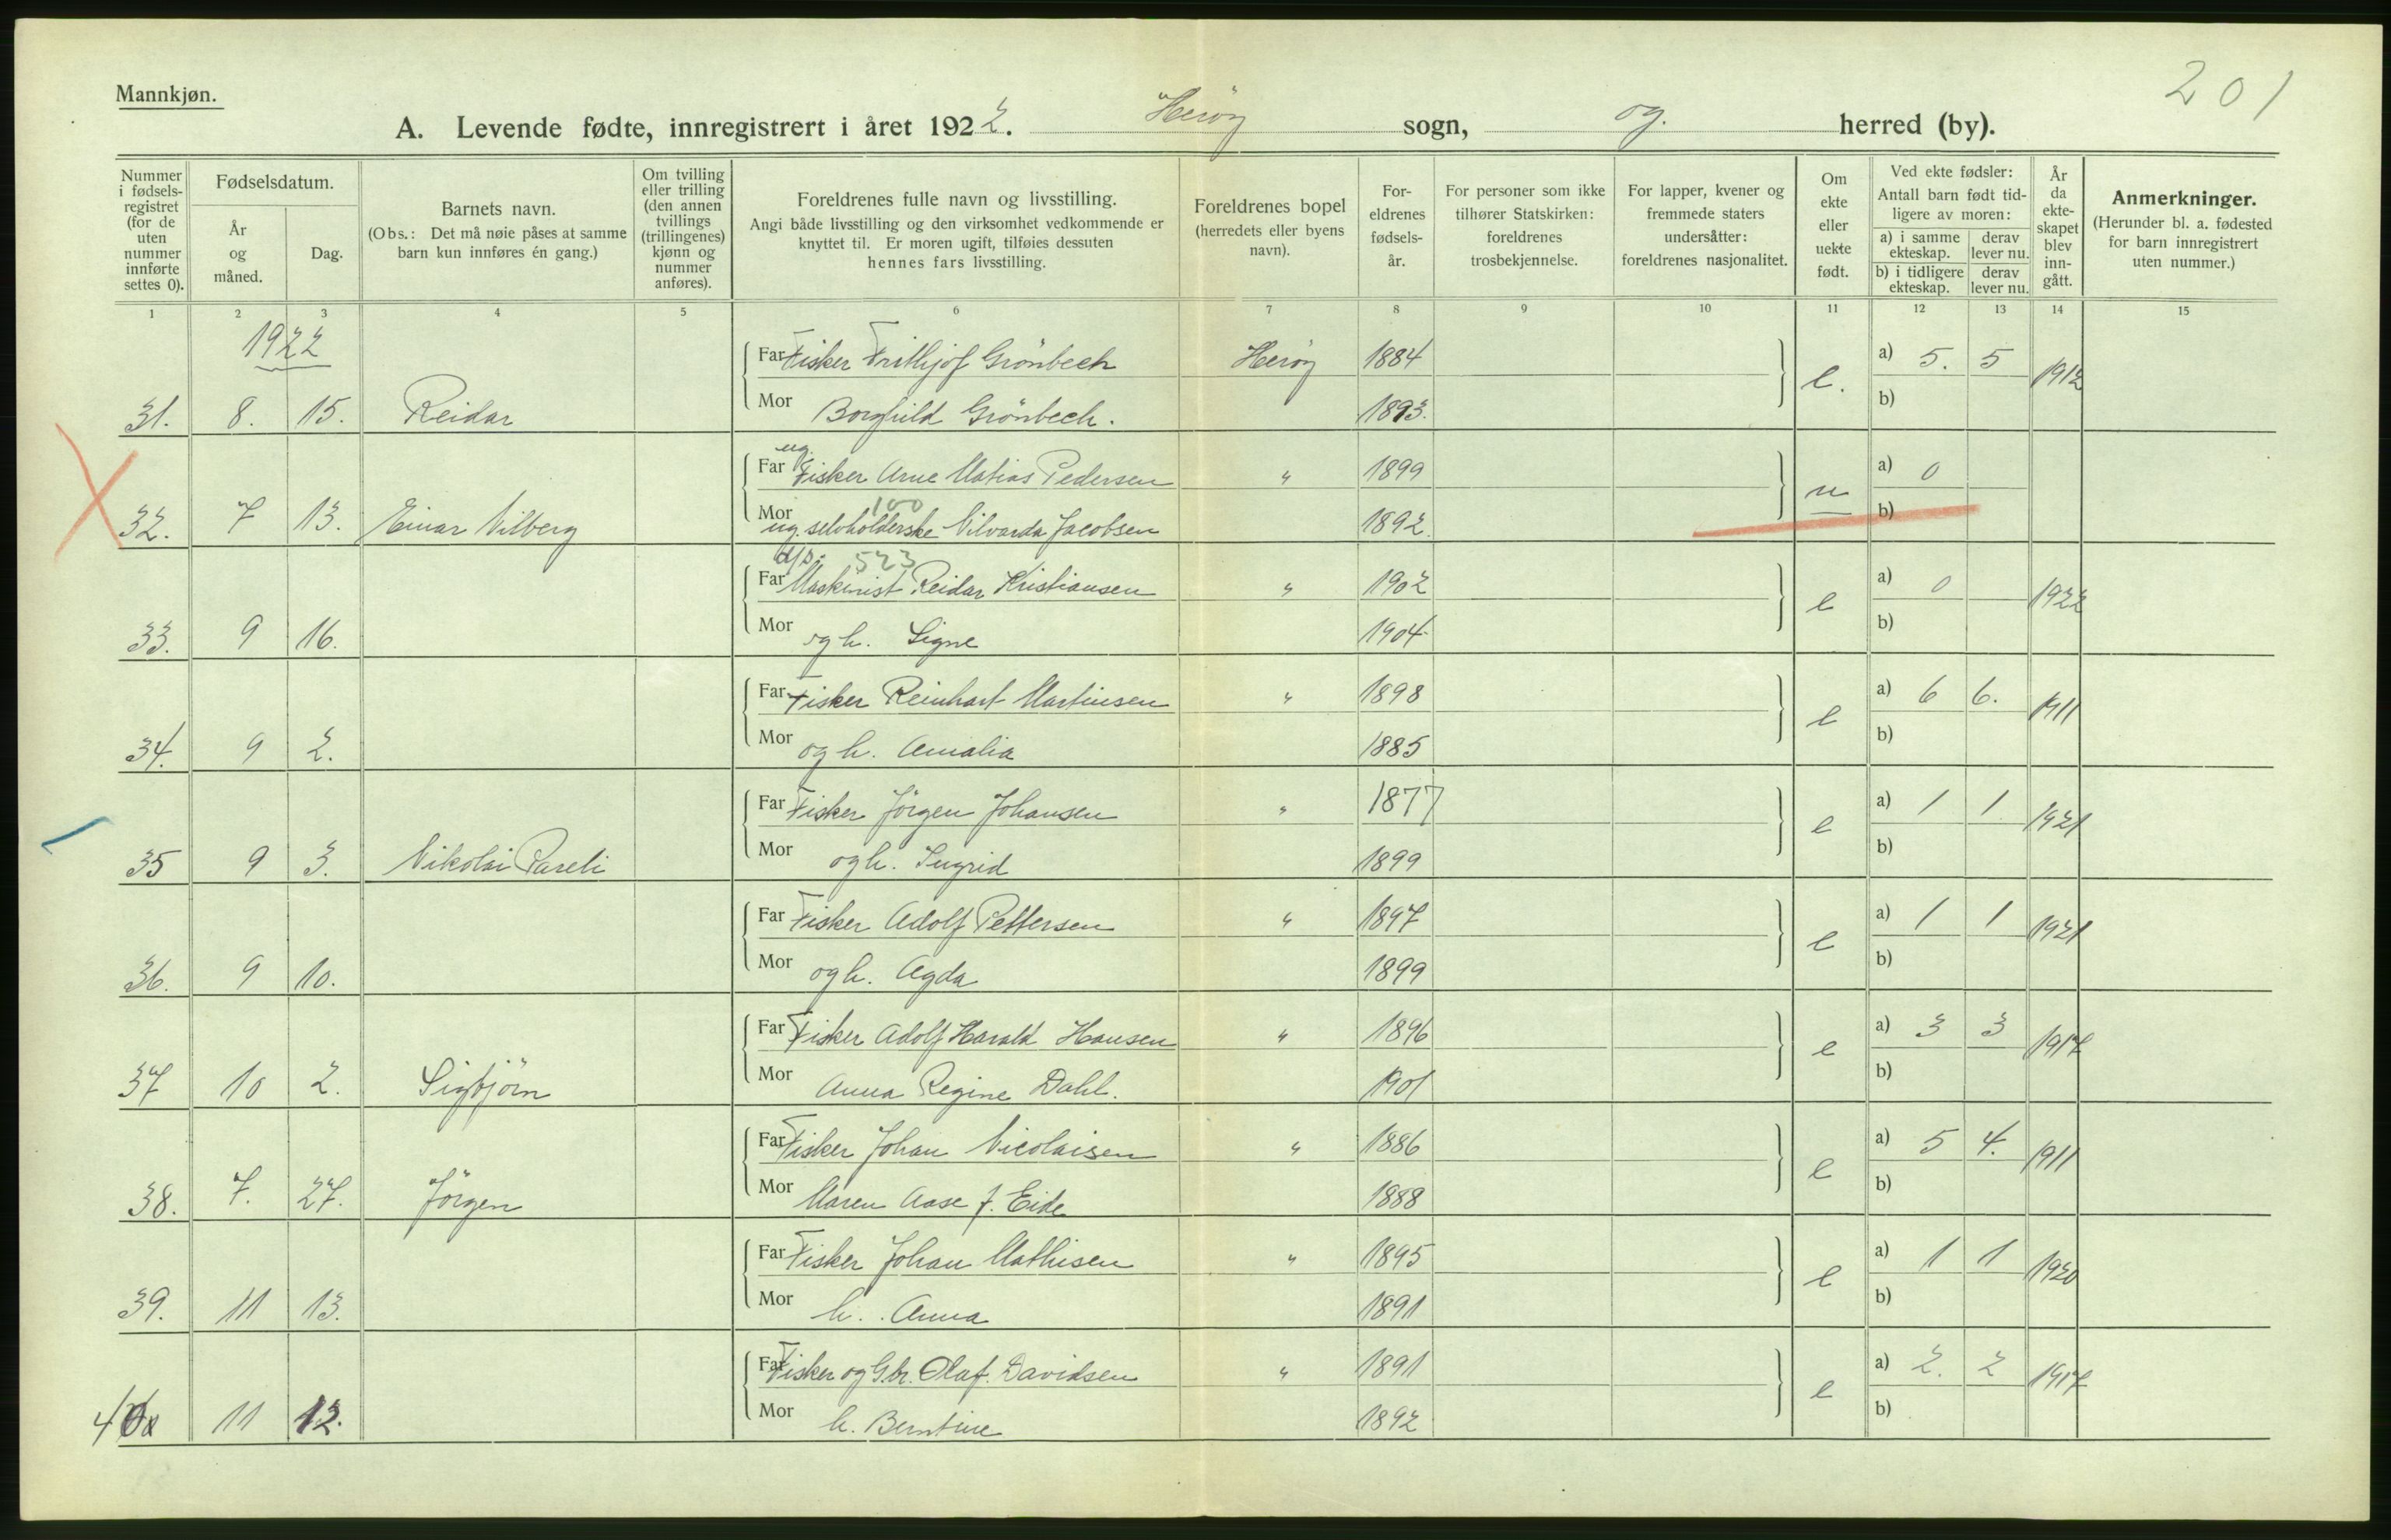 201
Mannkjøn.
A. Levende fødte, innregistrert i året 1922. Herøy sogn, og. herred (by).
Nummer i fødsels-registret (for de uten nummer innførte settes 0).
Fødselsdatum.
År og måned.
Dag.
Barnets navn.
(Obs.: Det må nøie påses at samme barn kun innføres én gang.)
Om tvilling eller trilling (den annen tvillings (trillingenes) kjønn og nummer anføres).
Foreldrenes fulle navn og livsstilling.
Angi både livsstilling og den virksomhet vedkommende er knyttet til. Er moren ugift, tilføies dessuten hennes fars livsstilling.
Foreldrenes bopel (herredets eller byens navn).
For-eldrenes fødsels-år.
For personer som ikke tilhører Statskirken: foreldrenes trosbekjennelse.
For lapper, kvener og fremmede staters undersåtter: foreldrenes nasjonalitet.
Om ekte eller uekte født.
Ved ekte fødsler: Antall barn født tid-ligere av moren:
a) i samme ekteskap. derav lever nu.
b) i tidligere ekteskap. derav lever nu.
År da ekte-skapet blev inn-gått.
Anmerkninger.
(Herunder bl. a. fødested for barn innregistrert uten nummer.)
1 2 3 4 5 6 7 8 9 10 11 12 13 14 15
1922
Far Fisker Frithjof Grönbech Herøy 1884 a) 5. 5
31. 8. 15. Reidar Mor Borghild Grönbech. 1893. e. b) 1912
ug.
Far Fisker Arne Matias Pedersen " 1899 a) 0
100
32. 7 13. Einar Vilberg Mor ug. selvholderske Vilvarda Jacobsen 1892. u b)
523
Far Maskinist Reidar Kristiansen " 1902 a) 0
33. 9 16. Mor og h. Signe 1904. e b) 1922
Far Fisker Reinhart Martinsen " 1898 a) 6 6.
34. 9 2. Mor og h. Amalia 1885 e b) 1911
Far Fisker Jörgen Johansen " 1877 a) 1 1
35 9 3. Nikolai Pareli Mor og h. Ingrid 1899 e b) 1921
Far Fisker Adolf Pettersen " 1897 a) 1 1
36. 9 10. Mor og h. Agda 1899 e b) 1921
Far Fisker Adolf Harald Hansen " 1896 a) 3 3
37 10 2. Sigbjörn Mor Anna Regine Dahl. 1901 e b) 1917
Far Fisker Johan Nicolaisen " 1886 a) 5 4.
38. 7. 27. Jörgen Mor Maren Aase f. Eide 1888 e b) 1911
Far Fisker Johan Mathisen " 1895 a) 1 1
39. 11 13. Mor h. Anna 1891 e b) 1920
Far Fisker og G.br. Olaf Davidsen " 1891 a) 2. 2
40 11 12. Mor h. Berntine 1892 e b) 1917